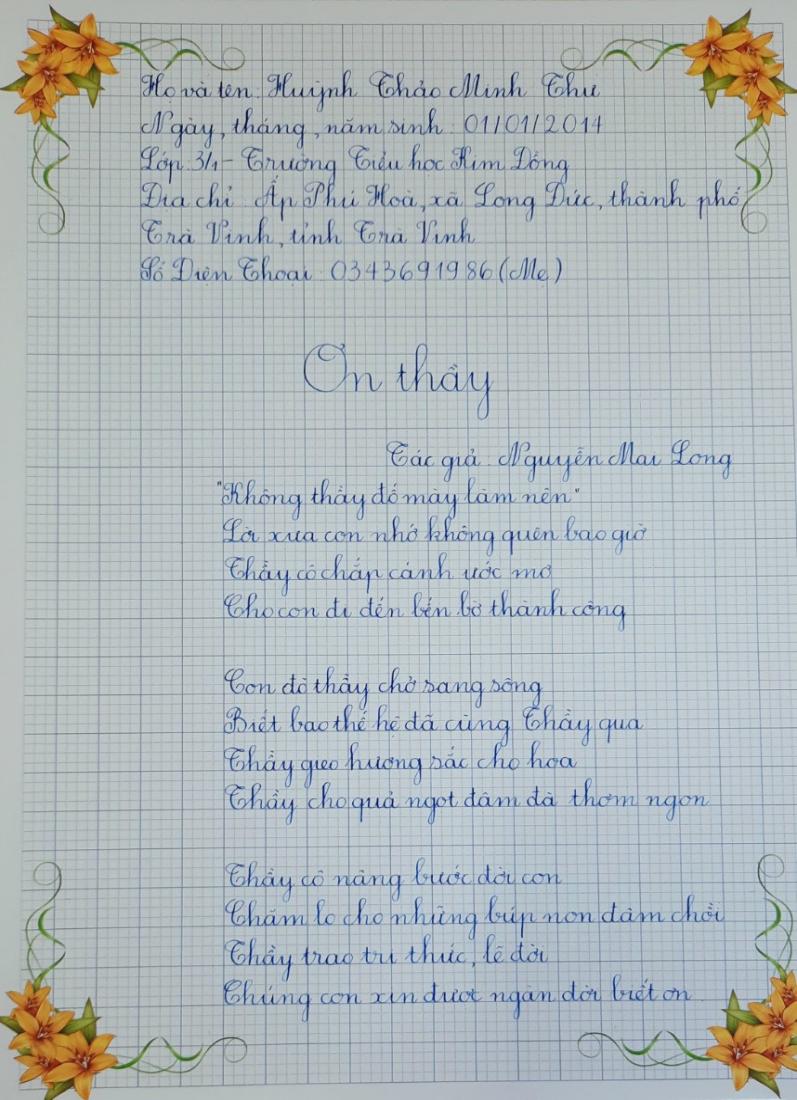 Họ và tên: Huỳnh Thảo Minh Thư
Ngày, tháng, năm sinh: 01/01/2014
Lớp: 3/1 - Trường Tiểu học Kim Đồng
Địa chỉ: Ấp Phú Hoà, xã Long Đức, thành phố
Trà Vinh, tỉnh Trà Vinh
Số Điện Thoại: 0343691986 (Mẹ)
Ơn thầy
Tác giả: Nguyễn Mai Long
"Không thầy đố mày làm nên"
Lời xưa con nhớ không quên bao giờ
Thầy cô chắp cánh ước mơ
Cho con đi đến bến bờ thành công
Con đò thầy chở sang sông
Biết bao thế hệ đã cùng Thầy qua
Thầy gieo hương sắc cho hoa
Thầy cho quả ngọt đậm đà thơm ngon
Thầy cô nâng bước đời con
Chăm lo cho những búp non đâm chồi
Thầy trao tri thức, lẽ đời
Chúng con xin được ngàn đời biết ơn